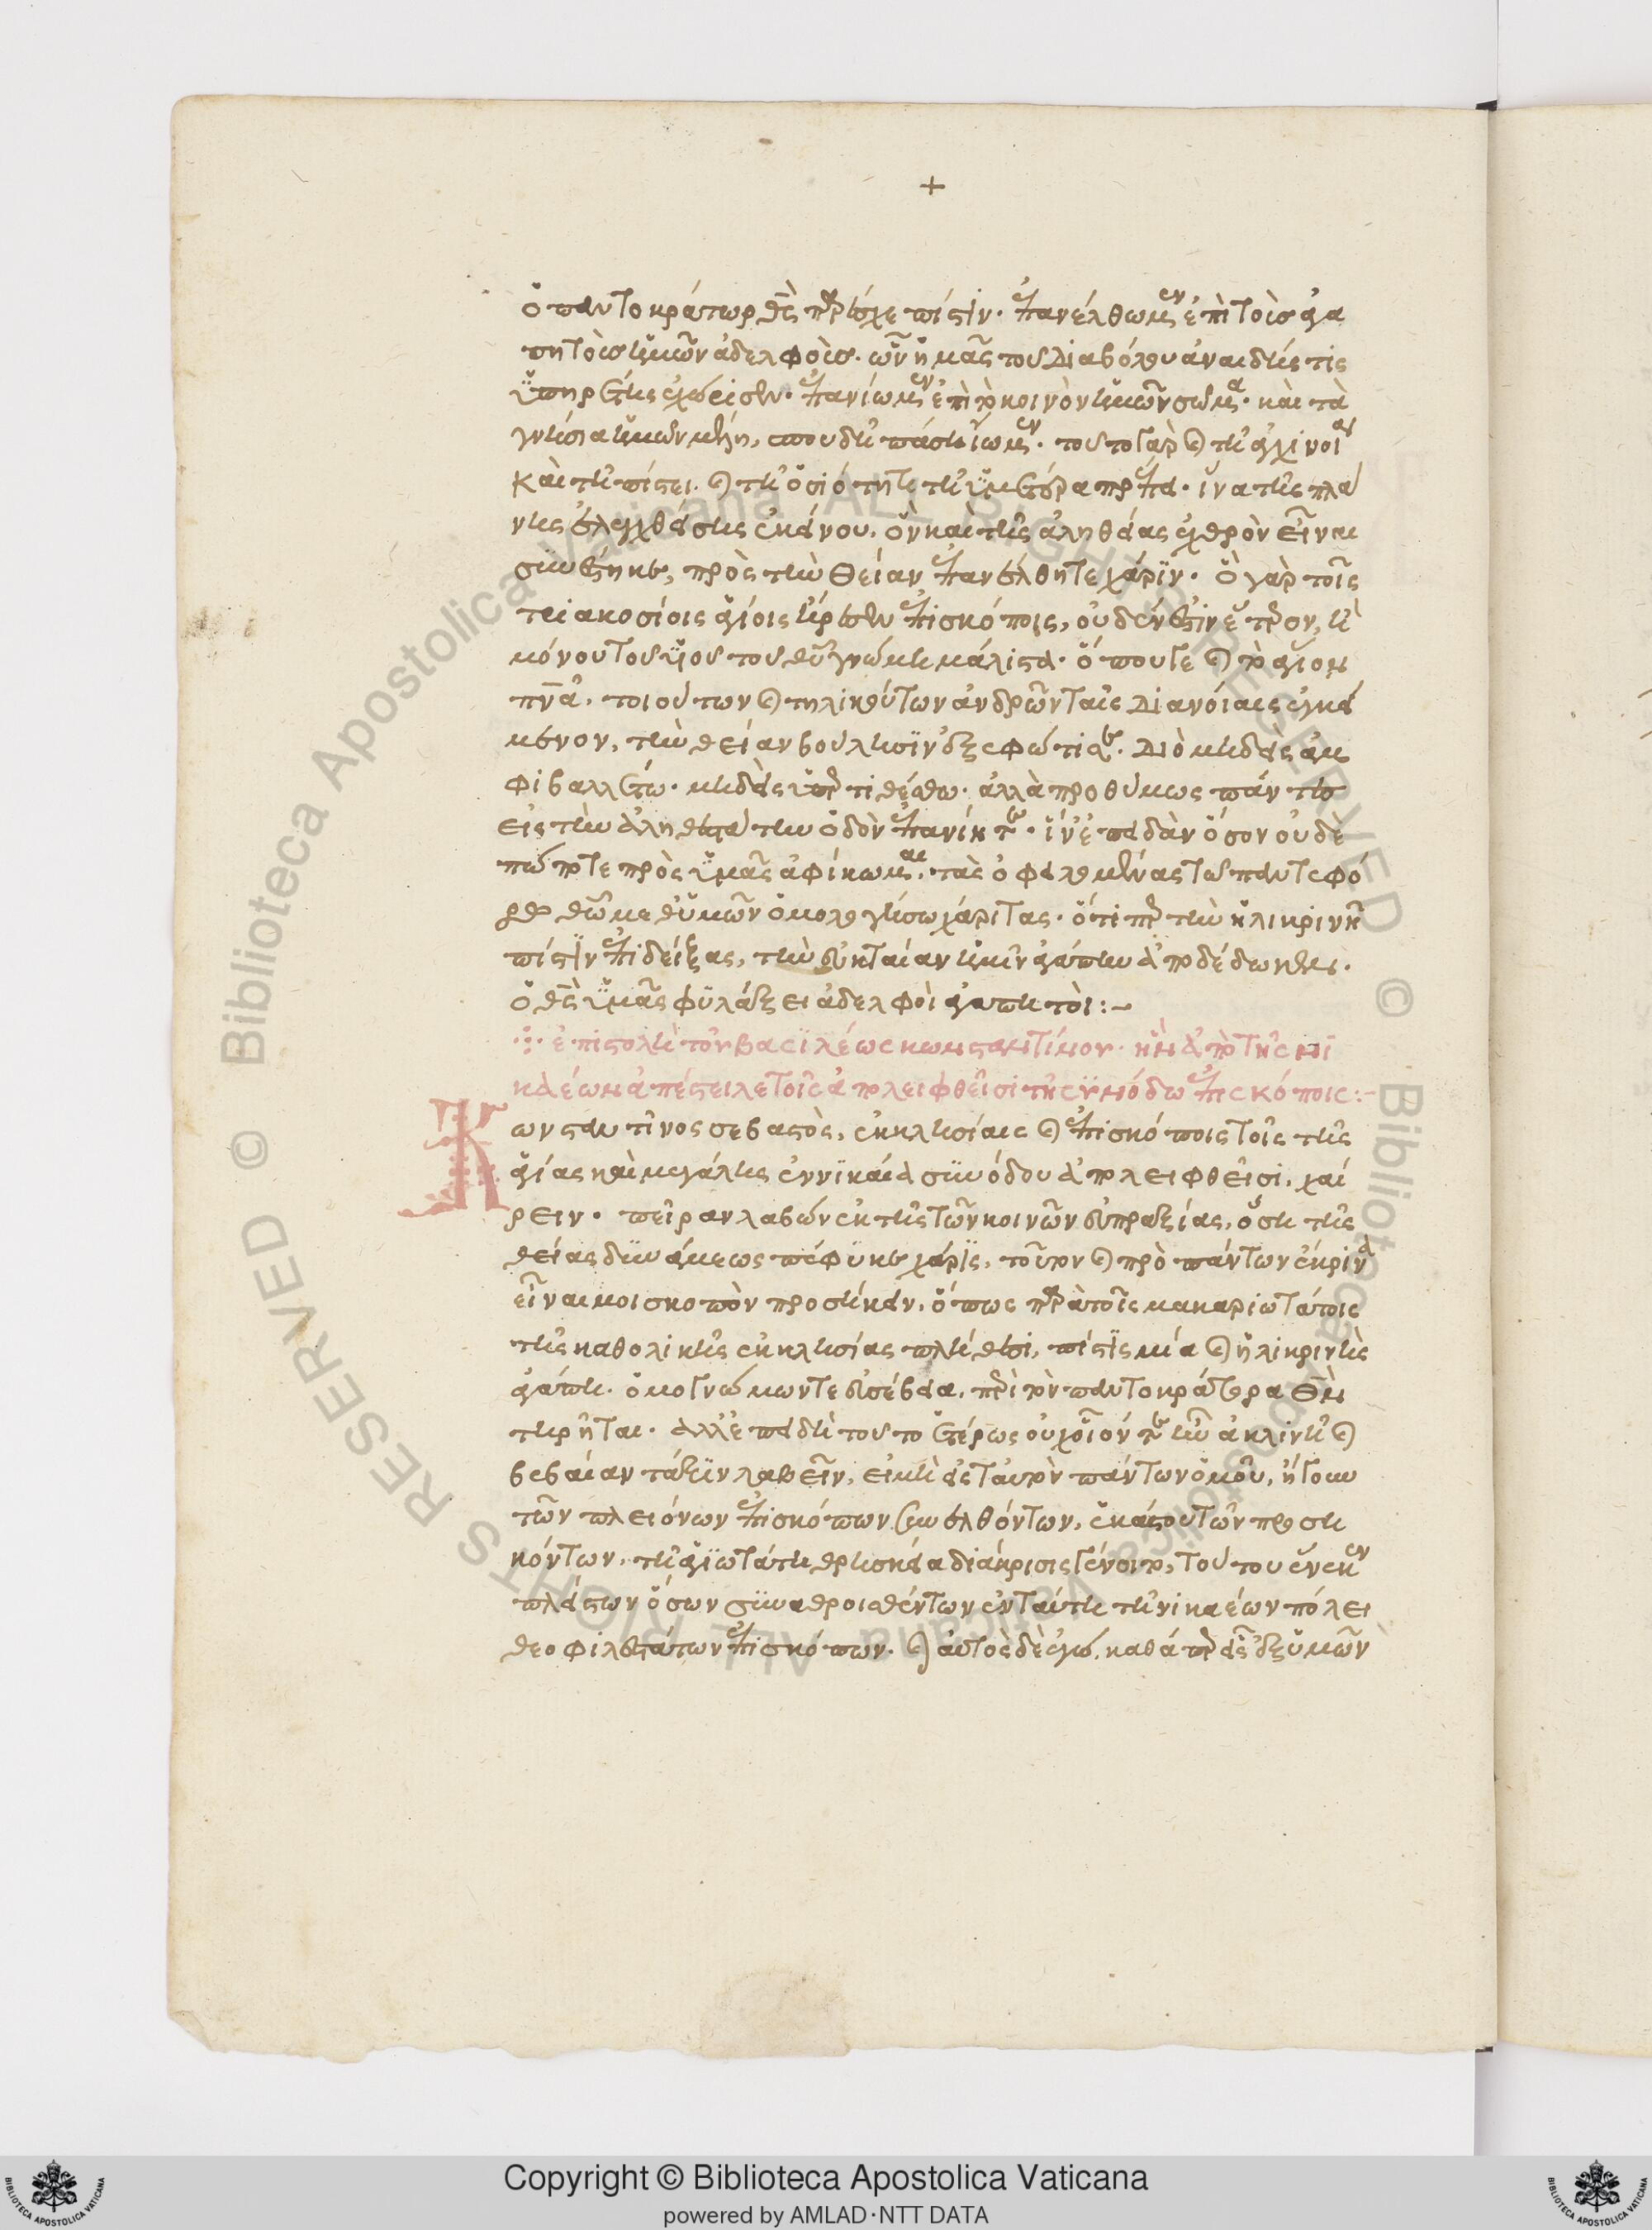 +
ὁ παντοκράτωρ θς παρέσχε πίστιν. ἐπανέλθωμεν ἐπὶ τοὺς ἀγα
πητοὺς ἡμῶν ἀδελφοὺς. ὧν ἡμᾶς τοῦ διαβόλου ἀναιδής τις
ὑπηρέτης ἐχώρισεν. ἐπανίωμεν ἐπὶ τὸ κοινὸν ἡμῶν σῶμα. καὶ τὰ
γνήσια ἡμῶν μέλη, σπουδῆ πάση ἴωμεν. τοῦτο γὰρ καὶ τῆ ἀγχινοία
καὶ τῆ πίστει. καὶ τῆ ὁσιότητι τῆ ὑμετέρα πρέπει. ἵνα τῆς πλά
νης ἐλεγχθείσης ἐκείνου, ὃν καὶ τῆς ἀληθείας ἐχθρὸν εἶναι
συνέστηκε, πρὸς τὴν θείαν ἐπανέλθητε χάριν. ὃ γὰρ τοῖς
τριακοσίοις ἁγίοις ἤρεσεν ἐπισκόποις, οὐδέν ἐστιν ἕτερον, ἢ
μόνου τοῦ υἱοῦ τοῦ θυ γνώμη μάλιστα. ὅπου γε καὶ τὸ ἅγιον
πνα. τοιούτων καὶ τηλικούτων ἀνδρῶν ταῖς διανοίαις ἐγκεί
μενον, τὴν θείαν βούλησιν ἐξεφώτισεν. διὸ μηδεὶς ἀμ
φιβαλλέτω. μηδεὶς ὑπερτιθέσθω. ἀλλὰ προθύμως πάντες
εἰς τὴν ἀληθεστάτην ὁδὸν ἐπανήκετε. ἵν' ἐπειδὰν ὅσον οὐδέ
πώποτε πρὸς ὑμᾶς ἀφίκωμαι. τὰς ὀφειλομένας τῶ παντεφό
ρω θῶ μεθ' ὑμῶν ὁμολογήσω χάριτας. ὅτι περ τὴν εἰλικρινῆ
πίστιν ἐπιδείξας, τὴν εὐκταίαν ἡμῖν ἀγάπην ἀποδέδωκεν.
ὁ θς ὑμᾶς φυλάξει ἀδελφοὶ ἀγαπητοί:-
ἐπιστολὴ τοῦ βασιλέως κωνσταντίνου. ἣν ἀπὸ τῆς νι
καέων ἀπέστειλε τοῖς ἀπολειφθεῖσι τῆς συνόδω ἐπισκόποις:-
Κωνσταντῖνος σεβαστὸς, ἐκκλησίαις καὶ ἐπισκόποις τοῖς τῆς
ἁγίας καὶ μεγάλης ἐν νικαία συνόδου ἀπολειφθεῖσι, χαί
ρειν. πεῖραν λαβὼν ἐκ τῆς τῶν κοινῶν εὐπραξίας, ὅση τῆς
θείας δυνάμεως πέφυκε χάρις, τοῦτον καὶ πρὸ πάντων ἔκρινα
εἶναι μοι σκοπὸν προσήκειν, ὅπως παρὰ τοῖς μακαριωτάτοις
τῆς καθολικῆς ἐκκλησίας πλήθεσι, πίστις μία καὶ εἰλικρινὴς
ἀγάπη. ὁμογνώμων τε εὐσέβεια, περὶ τὸν παντοκράτορα θν
τηρῆται. ἀλλ' ἐπειδὴ τοῦτο ἑτέρως οὐχ οἷόν τε ἦν ἀκλινῆ καὶ
βεβαίαν τάξιν λαβεῖν, εἰ μὴ εἰς ταὐτὸν πάντων ὁμοῦ, ἤγουν
τῶν πλειόνων ἐπισκόπων συνελθόντων, ἑκάστου τῶν προση
κόντων, τῆ ἁγιωτάτη θρησκεία διάκρισις γένοιτο, τούτου ἕνεκεν
πλείστων ὅσων συναθροισθέντων ἐνταύτη τῆ νικαέων πόλει
θεοφιλεστάτων ἐπισκόπων. καὶ αὐτὸς δὲ ἐγὼ, καθάπερ εἷς ἐξ ὑμῶν
Copyright © Biblioteca Apostolica Vaticana
powered by AMLAD·NTT DATA